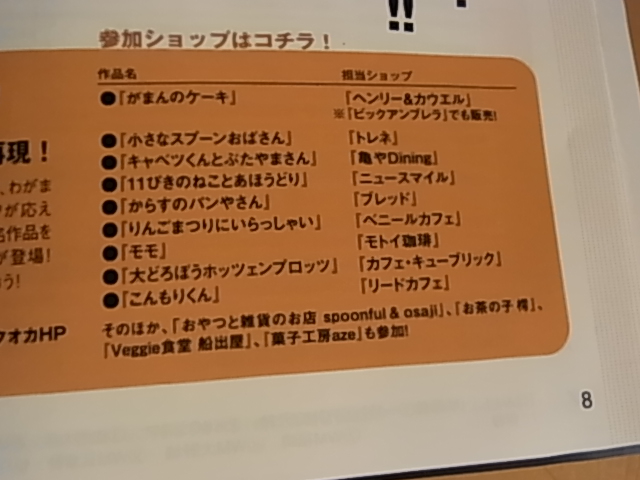 !!
参加ショップはコチラ！
作品名 担当ショップ
●『がまんのケーキ』 『ヘンリー&カウエル』
※『ビックアンブレラ』でも販売!
●『小さなスプーンおばさん』 『トレネ』
●『キャベツくんとぶたやまさん』 『亀やDining』
●『11ぴきのねことあほうどり』 『ニュースマイル』
●『からすのパンやさん』 『ブレッド』
●『りんごまつりにいらっしゃい』 『ペニールカフェ』
●『モモ』 『モトイ珈琲』
●『大どろぼうホッツェンプロッツ』 『カフェ・キューブリック』
●『こんもりくん』 『リードカフェ』
そのほか、『おやつと雑貨のお店 spoonful & osaji』、『お茶の子 樗』、
『Veggie食堂 船出屋』、『菓子工房aze』も参加!
再現！
、わがま
が応え
名作品を
が登場!
う!
フオカHP
8